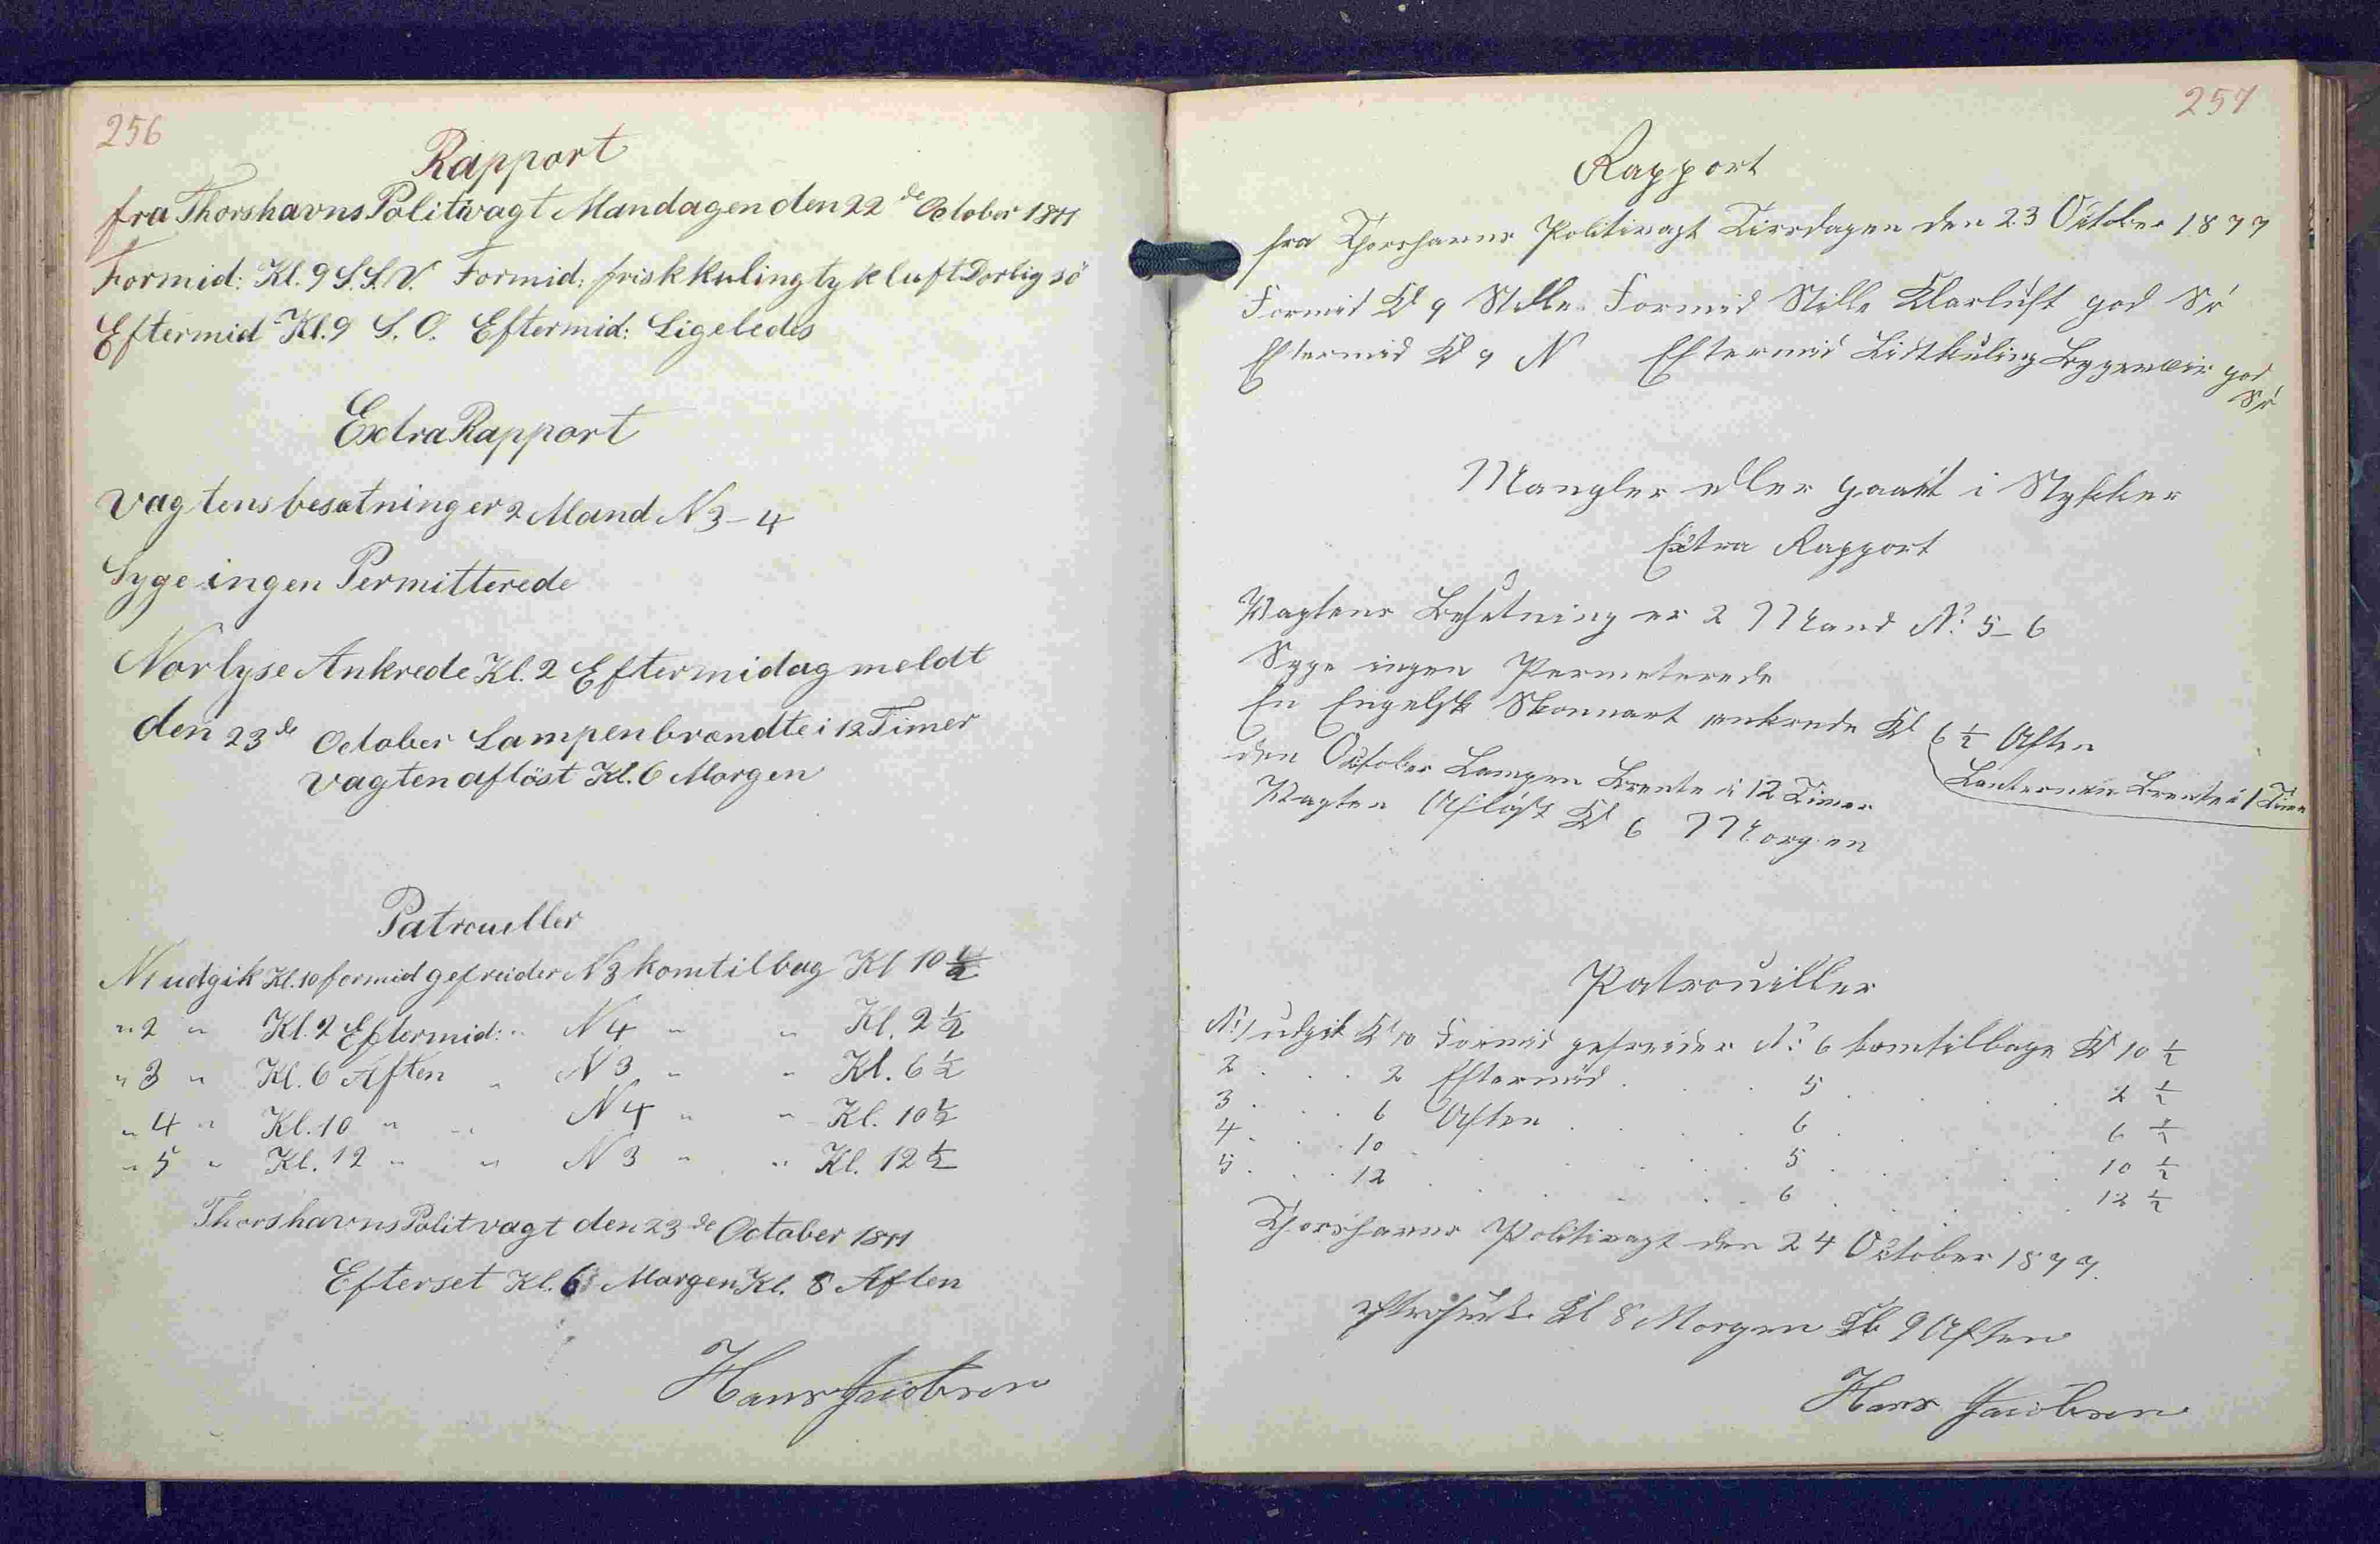 256
Rapport
fra Thorshavns Politivagt Mandagen den 22de October 1877
Formid: Kl. 9 S.S.V. Formid: frisk kuling tyk luft Dorlig sö
Eftermid Kl. 9 S.O. Eftermid: Ligeledes
Extra Rapport
Vagtens besætning er 2 Mand N 3-4
Syge ingen Permitterede
Norlyse Ankrede Kl. 2 Eftermidag meldt
den 23de October Lampen brændte i 12 Timer
Vagten aflöst Kl. 6 Morgen
Patrouller
N1 udgik Kl. 10 formid gefreider N3 kom tilbag Kl 10 1/2
" 2 " Kl. 2 Eftermid: " N4 " " Kl. 2 1/2
" 3 " Kl. 6 Aften " N3 " " Kl. 6 1/2
" 4 " Kl. 10 " " N4 " " Kl. 10 1/2
" 5 " Kl. 12 " " N3 " " Kl. 12 1/2
Thorshavns Politvagt den 23de October 1877
Efterset Kl. 6 Morgen Kl. 8 Aften
Hans Jacobsen
257
Rapport
fra Thorshavns Politivagt Tirsdagen den 23 October 1877
Formid Kl 9 Stille. Formid Stille Klarluft god Sö
Eftermid Kl 9 N Eftermid Lidtkuling Bygeveir god
Sö
Mangler eller gaaet i Stykker
Extra Rapport
Vagtens Besetning er 2 Mand No 5-6
Syge ingen Permeterede
En Engelsk Skonnart ankrede Kl 6 1/2 Aften
den October Lampen Brente i 12 Timer
Lanternen Brente i 1 Time
Vagten Aflöst Kl 6 Morgen
Patrouiller
No 1 udgik Kl 10 Formid gefreider No 6 komtilbage Kl 10 1/2
2 . . . 2 Eftermid . . . 5 . . . 2 1/2
3 . . . 6 Aften . . . 6 . . . 6 1/2
4 . . . 10 . . . 5 . . . 10 1/2
5 . . . 12 . . . 6 . . . 12 1/2
Thorshavns Politivagt den 24 October 1877.
Kl 8 Morgen Kl 9 Aften
Hans Jacobsen